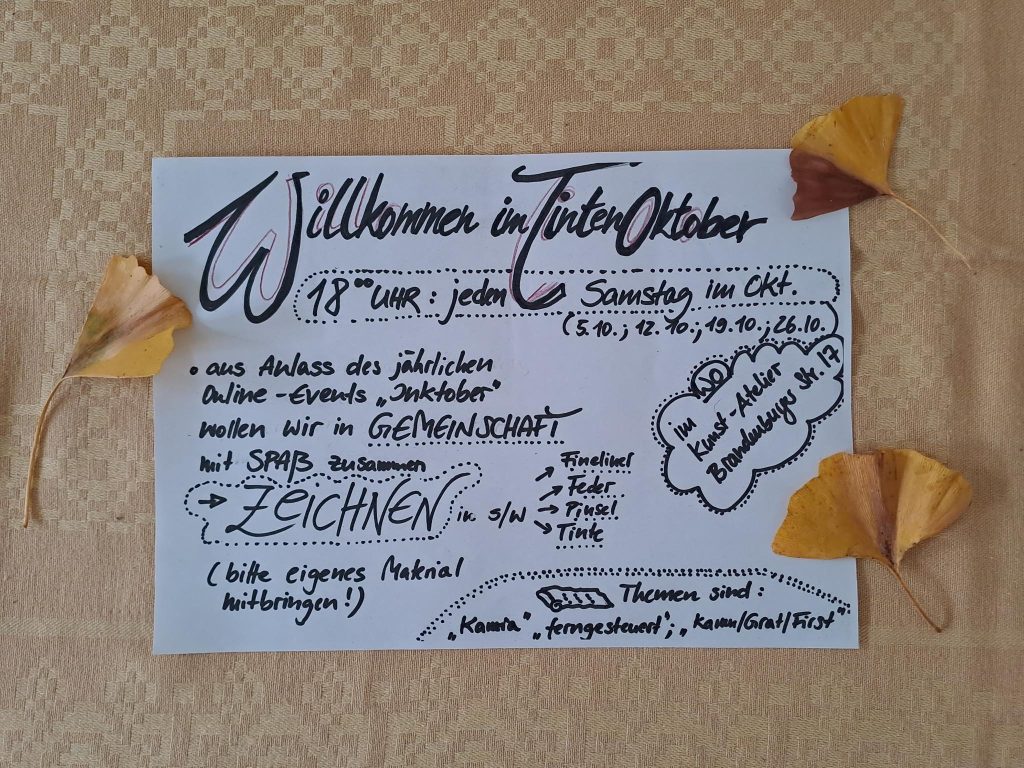 Willkommen im TintenOktober
18°° UHR: jeden Samstag im Okt.
(5.10.; 12.10.; 19.10.; 26.10.)
• aus Anlass des jährlichen
Online-Events „Inktober"
wollen wir in GEMEINSCHAFT
mit SPAß zusammen
→ ZEICHNEN in S/W
Fineliner
Feder
Pinsel
Tinte
(bitte eigenes Material
mitbringen!)
WO
im
Kunst-Atelier
Brandenburger Str. 17
Themen sind:
„Kamra" „ferngesteuert"; „Kamm/Grat/First"